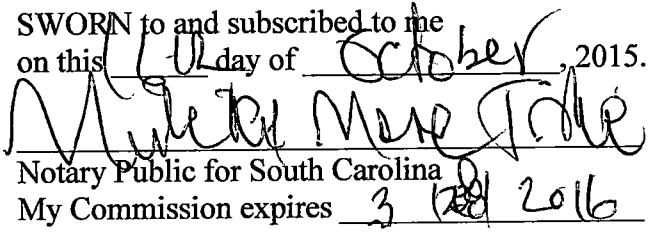 SWORN to and subscribed to me
on this 16th day of October, 2015.
Notary Public for South Carolina
My Commission expires 3 2016